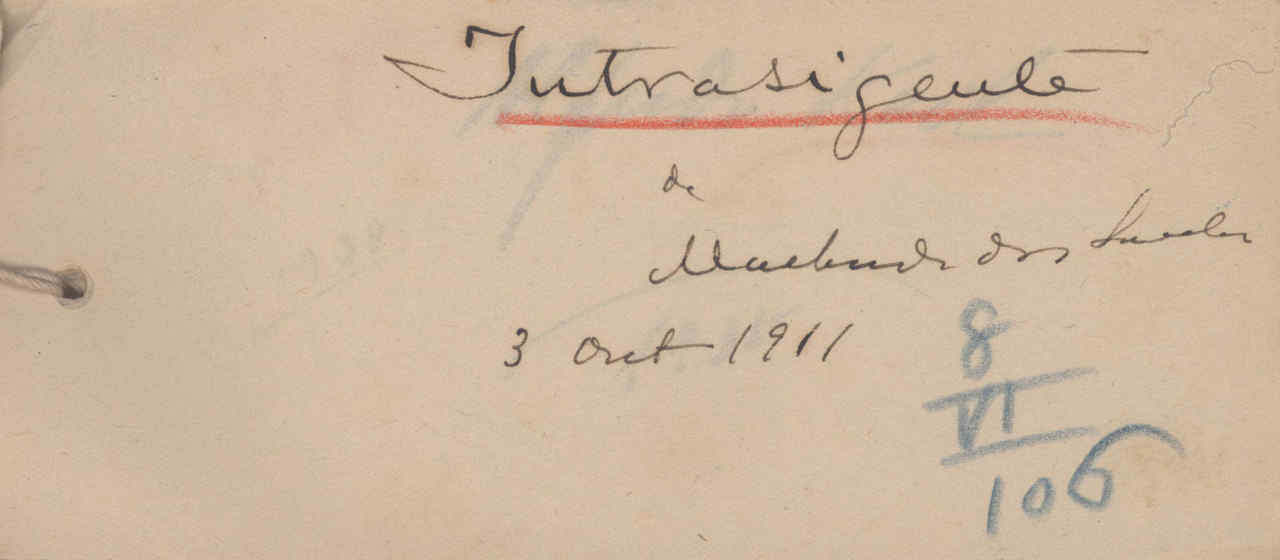 Intrasigente
de
Machado dos Santos
3 Out 1911
8
VI
106